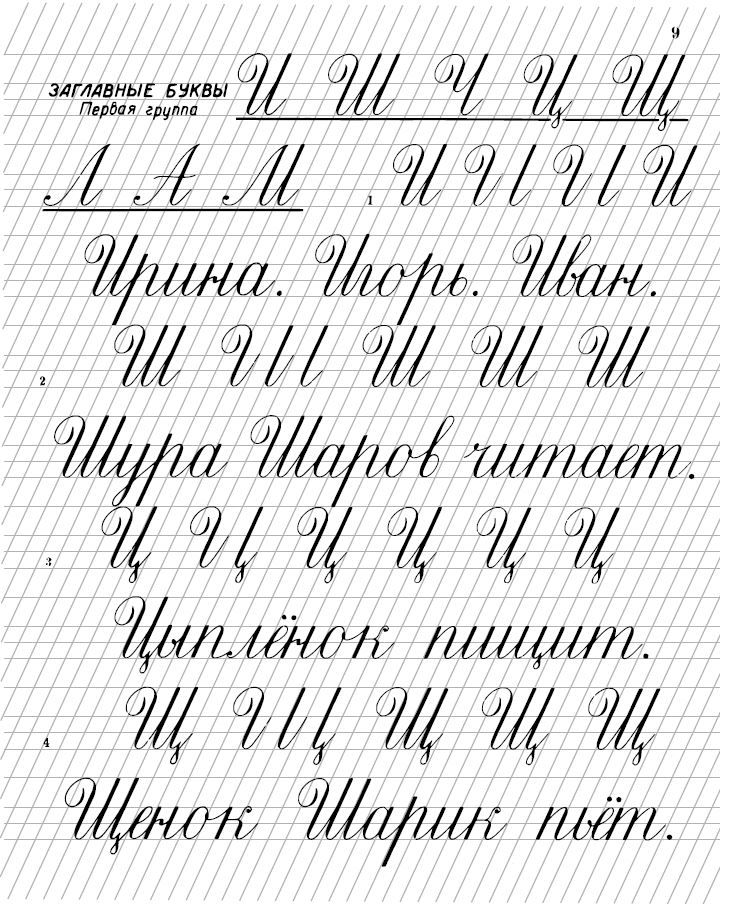 9
ЗАГЛАВНЫЕ БУКВЫ
Первая группа
И Ш Ч Ц Щ
Л А М
1 И И И И
Ирина. Игорь. Иван.
2 Ш Ш Ш Ш Ш
Шура Шаров читает.
3 Ц Ц Ц Ц Ц Ц
Цыплёнок пищит.
4 Щ Щ Щ Щ Щ
Щенок Шарик пьёт.